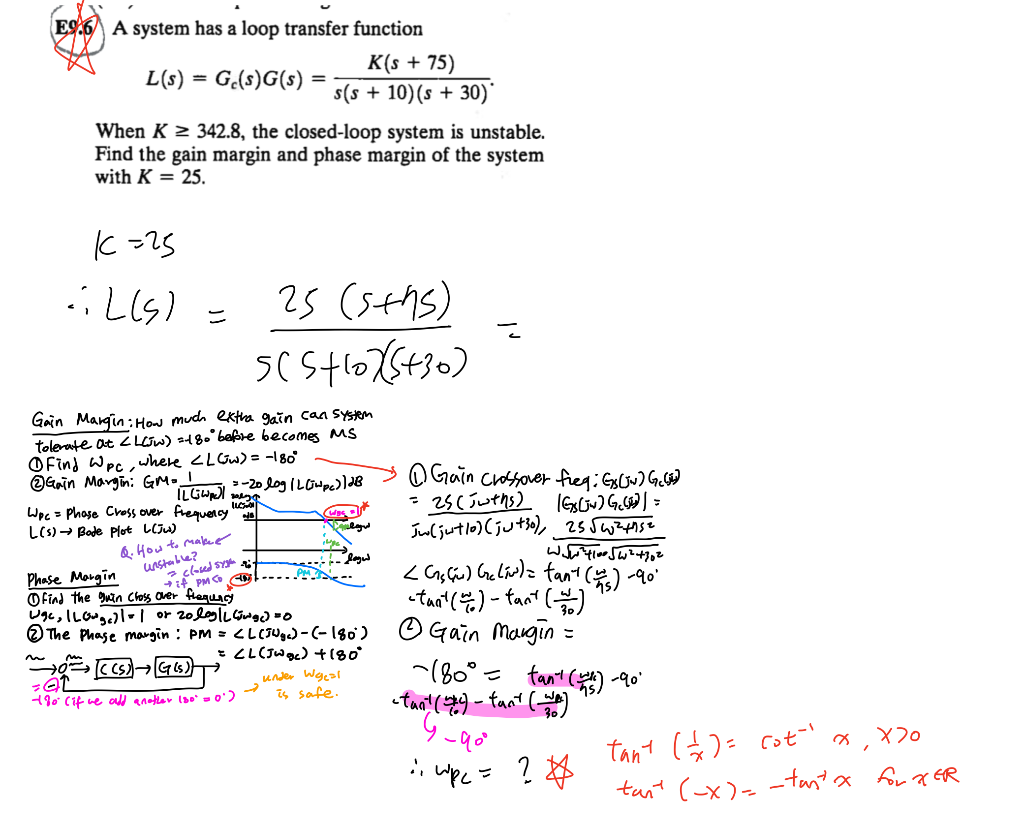 E9.6 A system has a loop transfer function
L(s) = Gc(s)G(s) = K(s + 75) / s(s + 10)(s + 30).
When K ≥ 342.8, the closed-loop system is unstable.
Find the gain margin and phase margin of the system
with K = 25.
K = 25
∴ L(s) = 25 (s+75) / s(s+10)(s+30) =
Gain Margin: How much extra gain can system
tolerate at ∠L(jw) = -180° before becomes MS
① Find Wpc, where ∠L(jw) = -180°
② Gain Margin: GM = 1 / |L(jwpc)| = -20 log |L(jwpc)| dB
Wpc = Phase Cross over frequency
L(s) → Bode Plot L(jw)
Q. How to make
unstable?
= closed system
→ if PM<0
logw
logw
PM
Phase Margin
① Find the gain cross over frequency
Wgc, |L(jwgc)| = 1 or 20 log|L(jwgc)| = 0
② The Phase margin: PM = ∠L(jwgc) - (-180°)
= ∠L(jwgc) + 180°
C(s) → G(s)
-180° (if we add another 180° = 0°)
→ under Wgc=1
is safe.
① Gain Crossover freq: Gs(jw) Gc(jw)
= 25(jw+75) / jw(jw+10)(jw+30),
|Gs(jw) Gc(jw)| = 25√w²+75² / w√w²+100 √w²+30²
∠Gs(jw) Gc(jw) = tan⁻¹(w/75) - 90°
- tan⁻¹(w/10) - tan⁻¹(w/30)
② Gain Margin =
-180° = tan⁻¹(wpc/75) - 90°
- tan⁻¹(wpc/10) - tan⁻¹(wpc/30)
-90°
∴ wpc = ?
tan⁻¹(1/x) = cot⁻¹ x, x>0
tan⁻¹(-x) = -tan⁻¹ x for x∈R